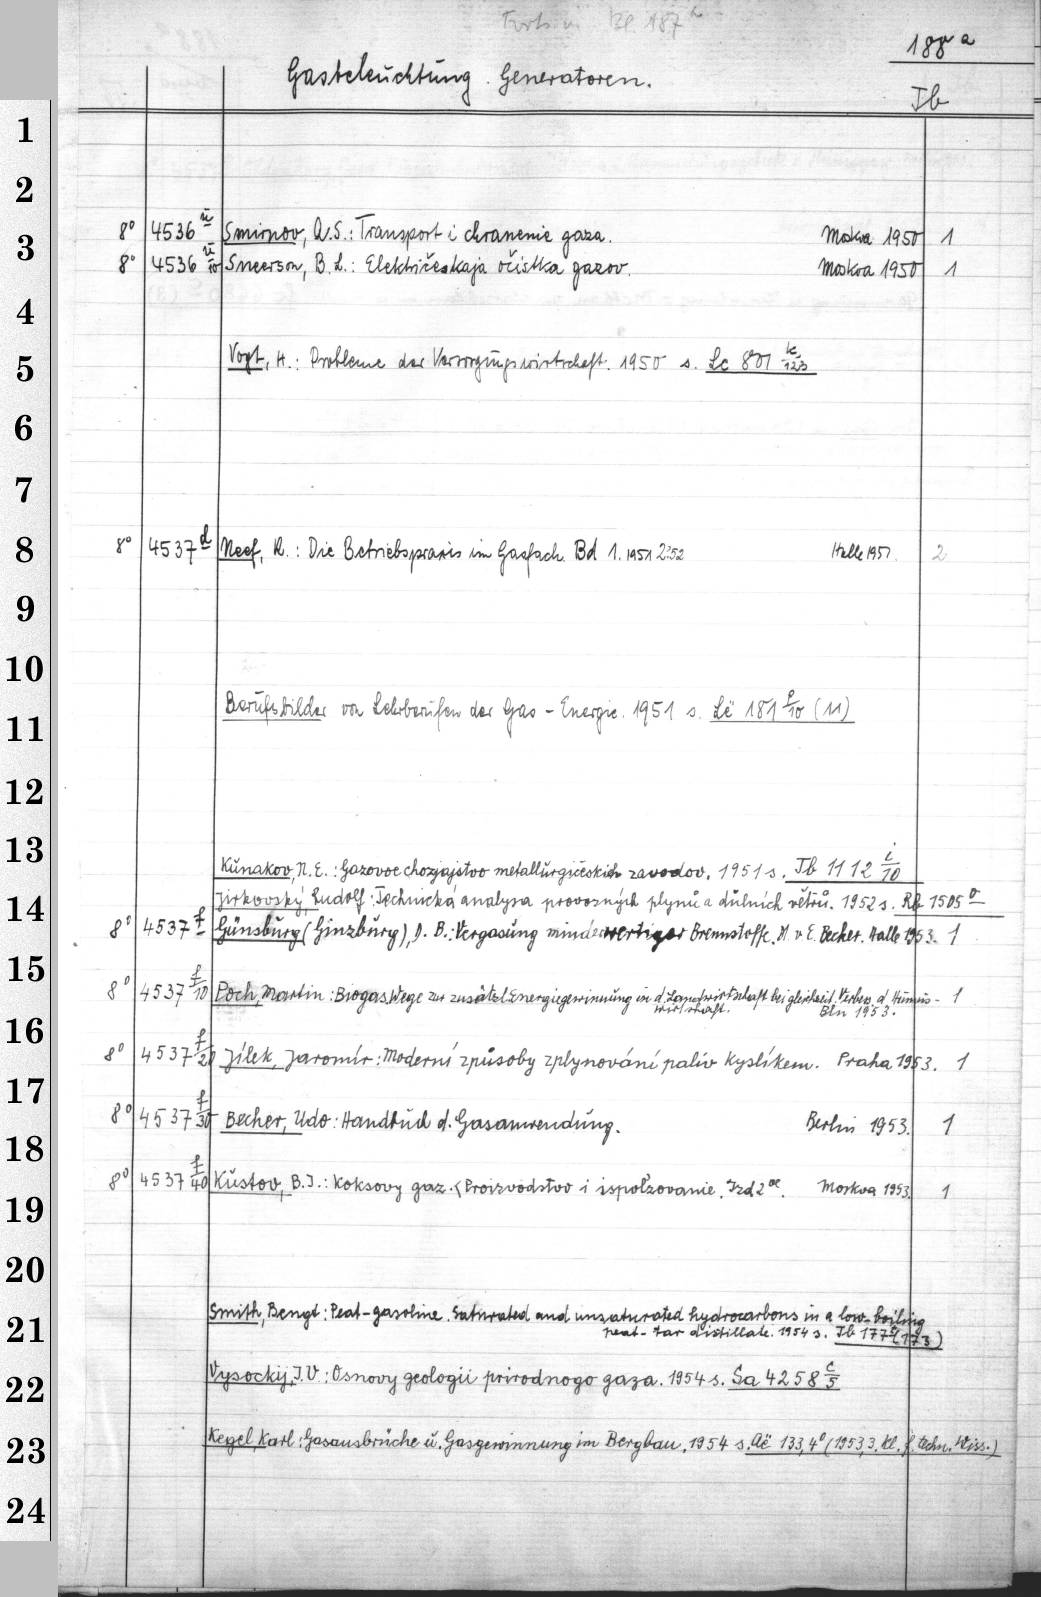 Forts. v. Bl. 187
188 a
Gasbeleuchtung. Generatoren.
Ib
1
2
3
8° 4536 ü Smirnov, A.S.: Transport i chranenie gaza. Moskva 1950 1
8° 4536 ü/10 Sneerson, B.L.: Električeskaja očistka gazov. Moskva 1950 1
4
5
Vogt, H.: Probleme der Versorgungswirtschaft. 1950 s. Lc 801 k/123
6
7
8
8° 4537 d Neef, K.: Die Betriebspraxis im Gasfach. Bd 1. 1951 2.52 Halle 1951. 2
9
10
11
Berufsbilder von Lehrberufen der Gas-Energie. 1951 s. Lë 181 f/10 (11)
12
13
Kunakov, N.E.: Gazovoe chozjajstvo metallurgičeskich zavodov. 1951 s. Ib 1112 i/10
14
Jirkovský, Rudolf: Technická analysa provozných plynů a důlních větrů. 1952 s. Rb 1505 o
8° 4537 f Günsburg (Ginzburg), D.B.: Vergasung minderwertiger Brennstoffe. A. v. E. Becker. Halle 1953. 1
15
8° 4537 f/10 Poch, Martin: Biogas. Wege zur zusätzl. Energiegewinnung in d. Landwirtschaft bei gleichzeit. Verbess. d. Humus-
wirtschaft. Bln 1953. 1
16
8° 4537 f/20 Jílek, Jaromír: Moderní způsoby zplynování paliv kyslíkem. Praha 1953. 1
17
8° 4537 f/30 Becher, Udo: Handbuch d. Gasanwendung. Berlin 1953. 1
18
8° 4537 f/40 Kustov, B.I.: Koksovy gaz. (Proizvodstvo i ispol'zovanie. Izd 2oe. Moskva 1953. 1
19
20
21
Smith, Bengt: Peat-gasoline. Saturated and unsaturated hydrocarbons in a low-boiling
peat-tar distillate. 1954 s. Ib 177 (173)
22
Vysockij, I.V.: Osnovy geologii prirodnogo gaza. 1954 s. Sa 4258 c/5
23
Kegel, Karl: Gasausbrüche u. Gasgewinnung im Bergbau. 1954 s. Aë 133,4° (1953,3. Kl. f. techn. Wiss.)
24